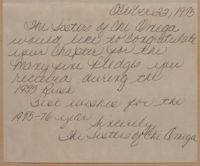 October 22, 1975
The Sisters of Chi Omega
would like to congratulate
your chapter for the
many fine pledges you
received during the
1975 Rush
Best wishes for the
1975-76 year
Sincerely,
The Sisters of Chi Omega